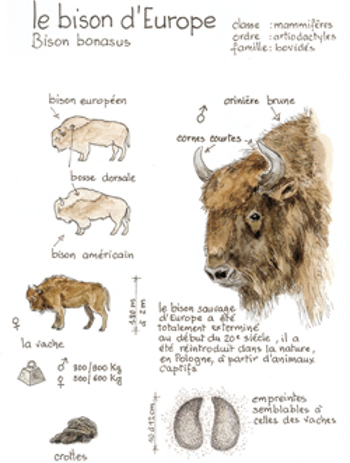 le bison d'Europe
Bison bonasus
classe : mammifères
ordre : artiodactyles
famille : bovidés
bison européen
bosse dorsale
bison américain
♂
crinière brune
cornes courtes
♀
la vache
1,80 m
à 2 m
♂ 800/900 Kg
♀ 500/600 Kg
le bison sauvage
d'Europe a été
totalement exterminé
au début du 20e siècle, il a
été réintroduit dans la nature,
en Pologne, à partir d'animaux
captifs
crottes
empreintes
semblables à
celles des vaches